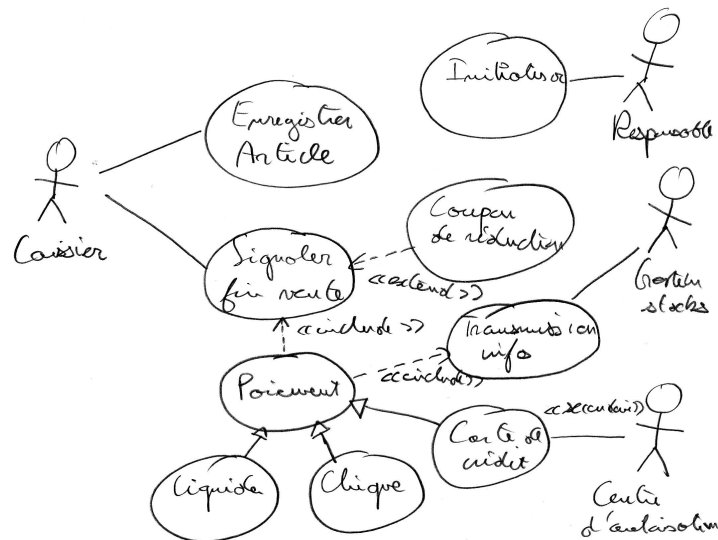 Initialiser
Responsable
Enregistrer
Article
Caissier
Coupon
de réduction
Signaler
fin vente
<<extend>>
Gestion
stocks
<<include>>
Transmission
info
<<include>>
Paiement
Carte de
crédit
<<secondaire>>
Liquide
Chèque
Centre
d'autorisation